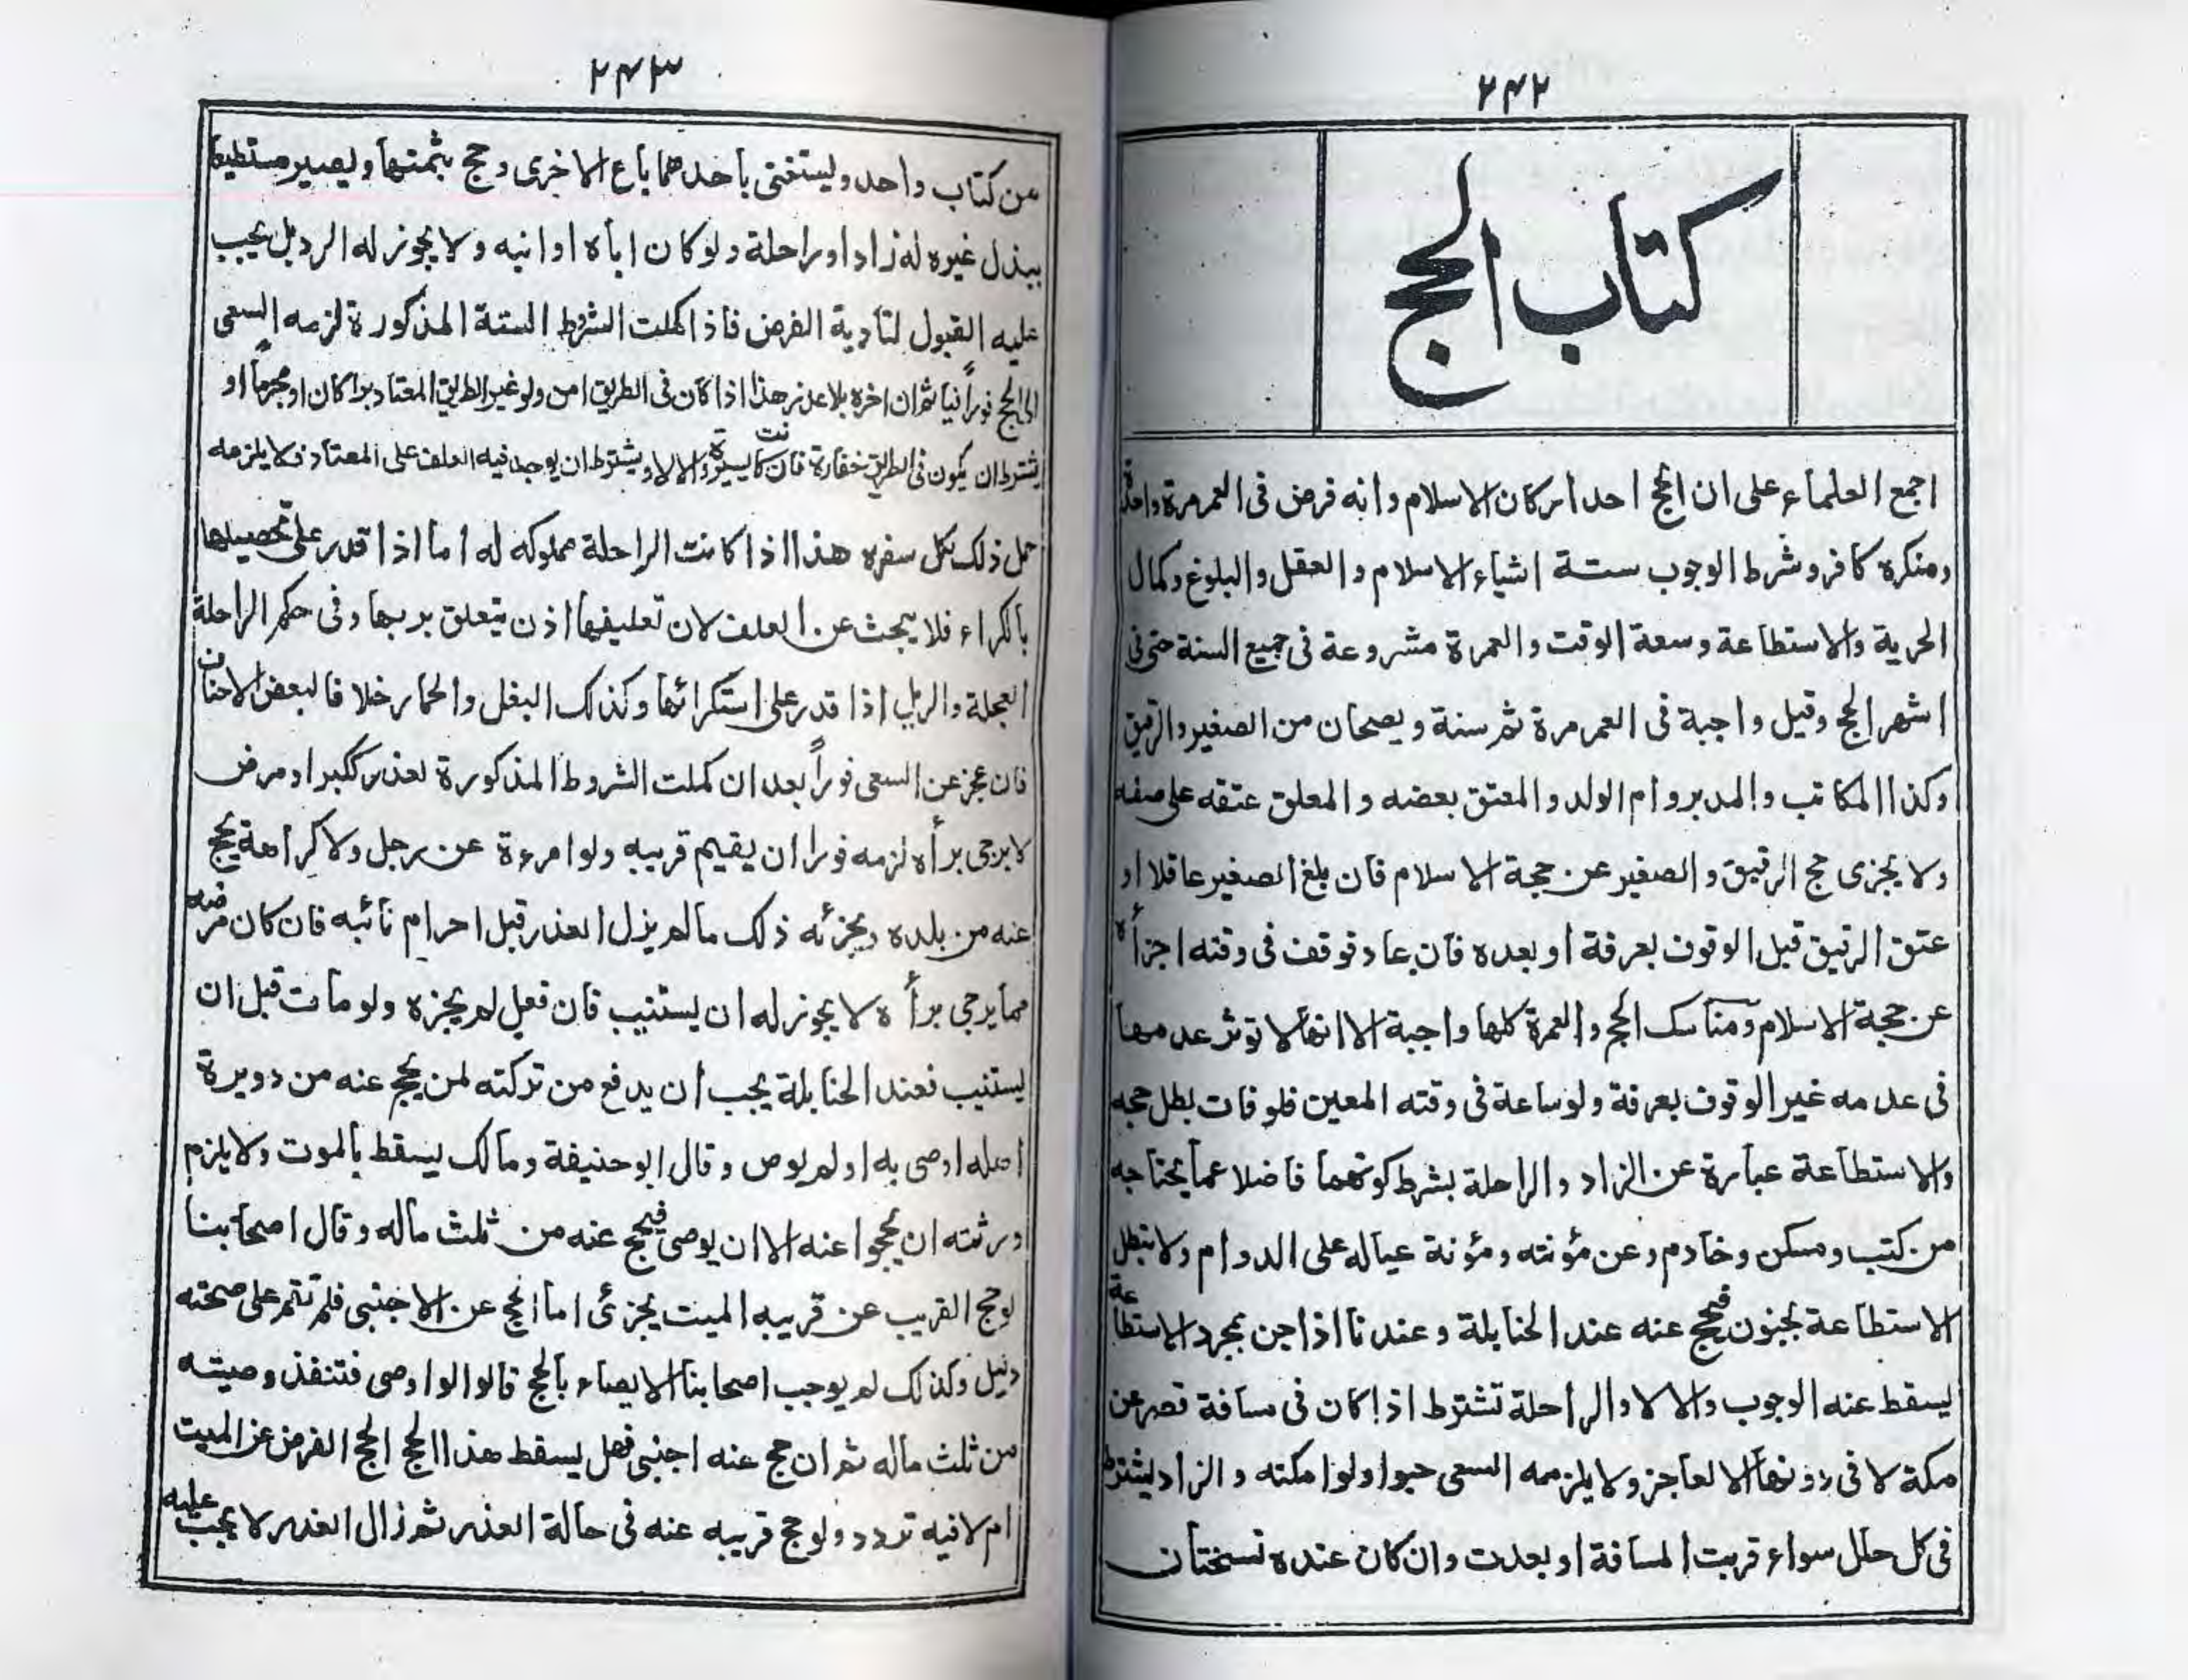 ٢٤٢
كتاب الحج
اجمع العلماء على ان الحج احد اركان الاسلام وانه فرض فى العمر مرة واحدة
ومنكره كافر وشرط الوجوب ستة اشياء الاسلام والعقل والبلوغ وكمال
الحرية والاستطاعة وسعة الوقت والعمرة مشروعة فى جميع السنة حتى فى
اشهر الحج وقيل واجبة فى العمر مرة ثم سنة ويصحان من الصغير والرقيق
وكذا المكاتب والمدبر وام الولد والمعتق بعضه والمعلق عتقه على صفه
ولا يجزى حج الرقيق والصغير عن حجة الاسلام فان بلغ الصغير عاقلا او
عتق الرقيق قبل الوقوف بعرفة او بعده فان عاد فوقف فى وقته اجزأه
عن حجة الاسلام ومناسك الحج والعمرة كلها واجبة الا انها لا توثر عدمها
فى عدمه غير الوقوف بعرفة ولو ساعة فى وقته المعين فلو فات بطل حجه
والاستطاعة عبارة عن الزاد والراحلة بشرط كونهما فاضلا عما يحتاجه
من كتب ومسكن وخادم وعن مؤنته ومؤنة عياله على الدوام ولا تبطل
الاستطاعة بجنون فيحج عنه عند الحنابلة وعندنا اذا جن بمجرد الاستطاعة
يسقط عنه الوجوب والا لا والراحلة تشترط اذا كان فى مسافة قصر عن
مكة لا فى دونها الا لعاجز ولا يلزمه السعى حبوا ولو امكنه والزاد يشترط
فى كل حال سواء قربت المسافة او بعدت وان كان عنده نسختان
٢٤٣
من كتاب واحد وليستغنى باحدهما باع الاخرى وحج بثمنها ويصير مستطيعا
ببذل غيره له زادا وراحلة ولو كان اباه او ابنه ولا يجوز له الرد بل يجب
عليه القبول لتادية الفرض فاذا كملت الشروط الستة المذكورة لزمه السعى
الى الحج فوراً فياثم ان اخره بلا عذر هذا اذا كان فى الطريق امن ولو غير الطريق المعتاد براً كان او بحرا او
يشترط ان يكون فى الطريق خفارة فان كانت يسيرة والا لا ويشترط ان يوجد فيه العلف على المعتاد فلا يلزمه
حمل ذلك لكل سفره هذا اذا كانت الراحلة مملوكه له اما اذا قدر على تحصيلها
بالكراء فلا يبحث عن العلف لان تعليفها اذن يتعلق بربها وفى حكم الراحلة
العجلة والريل اذا قدر على استكرائها وكذلك البغل والحمار خلافا لبعض الاحناف
فان عجز عن السعى فوراً بعد ان كملت الشروط المذكورة لعذر ككبر او مرض
لا يرجى برأه لزمه فورا ان يقيم قريبه ولو امرءة عن رجل ولا كراهة يحج
عنه من بلده ويجزئه ذلك ما لم يزل العذر قبل احرام نائبه فان كان مرضه
مما يرجى برأه لا يجوز له ان يستنيب فان فعل لم يجزه ولو مات قبل ان
يستنيب فعند الحنابلة يجب ان يدفع من تركته لمن يحج عنه من دويرة
اهله اوصى به او لم يوص وقال ابو حنيفة ومالك يسقط بالموت ولا يلزم
ورثته ان يحجوا عنه الا ان يوصى فيحج عنه من ثلث ماله وقال اصحابنا
لو حج القريب عن قريبه الميت يجزئ اما الحج عن الاجنبى فلم تقم على صحته
دليل وكذلك لم يوجب اصحابنا الايصاء بالحج قالوا لو اوصى فتنفذ وصيته
من ثلث ماله ثم ان حج عنه اجنبى فهل يسقط هذا الحج الحج الفرض عن الميت
ام لا فيه تردد ولو حج قريبه عنه فى حالة العذر ثم زال العذر لا يجب عليه